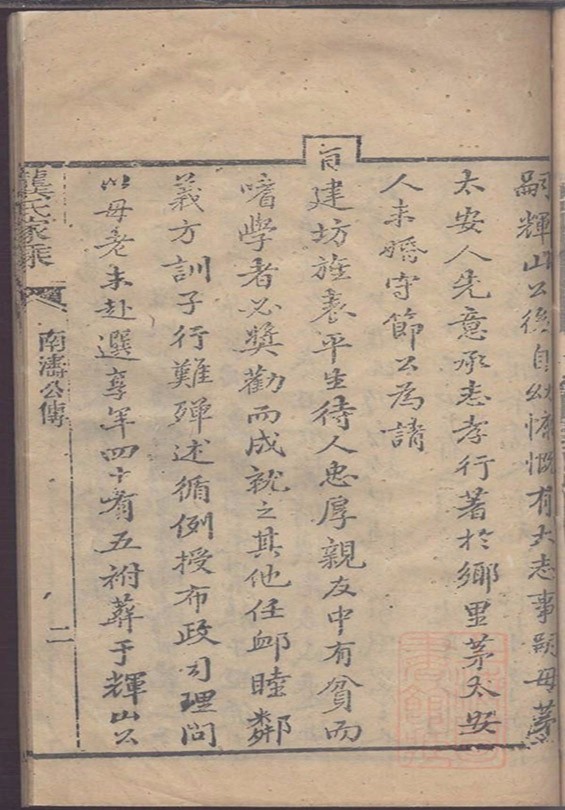 嗣輝山公後自幼慷慨有大志事嗣母茅
太安人先意承志孝行著於鄉里茅太安
人未婚守節公為請
旨建坊旌表平生待人忠厚親友中有貧而
嗜學者必獎勸而成就之其他任卹睦鄰
義方訓子行難殫述循例授布政司理問
以母老未赴選享年四十有五祔葬于輝山公
龔氏家乘
南濤公傳
二